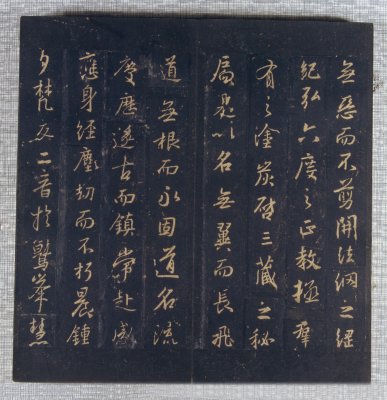 無惡而不剪開法網之綱
紀弘六度之正教拯羣
有之塗炭啓三藏之秘
扃是以名無翼而長飛
道無根而永固道名流
慶歷遂古而鎮常赴感
應身經塵劫而不朽晨鍾
夕梵交二音於鷲峯慧